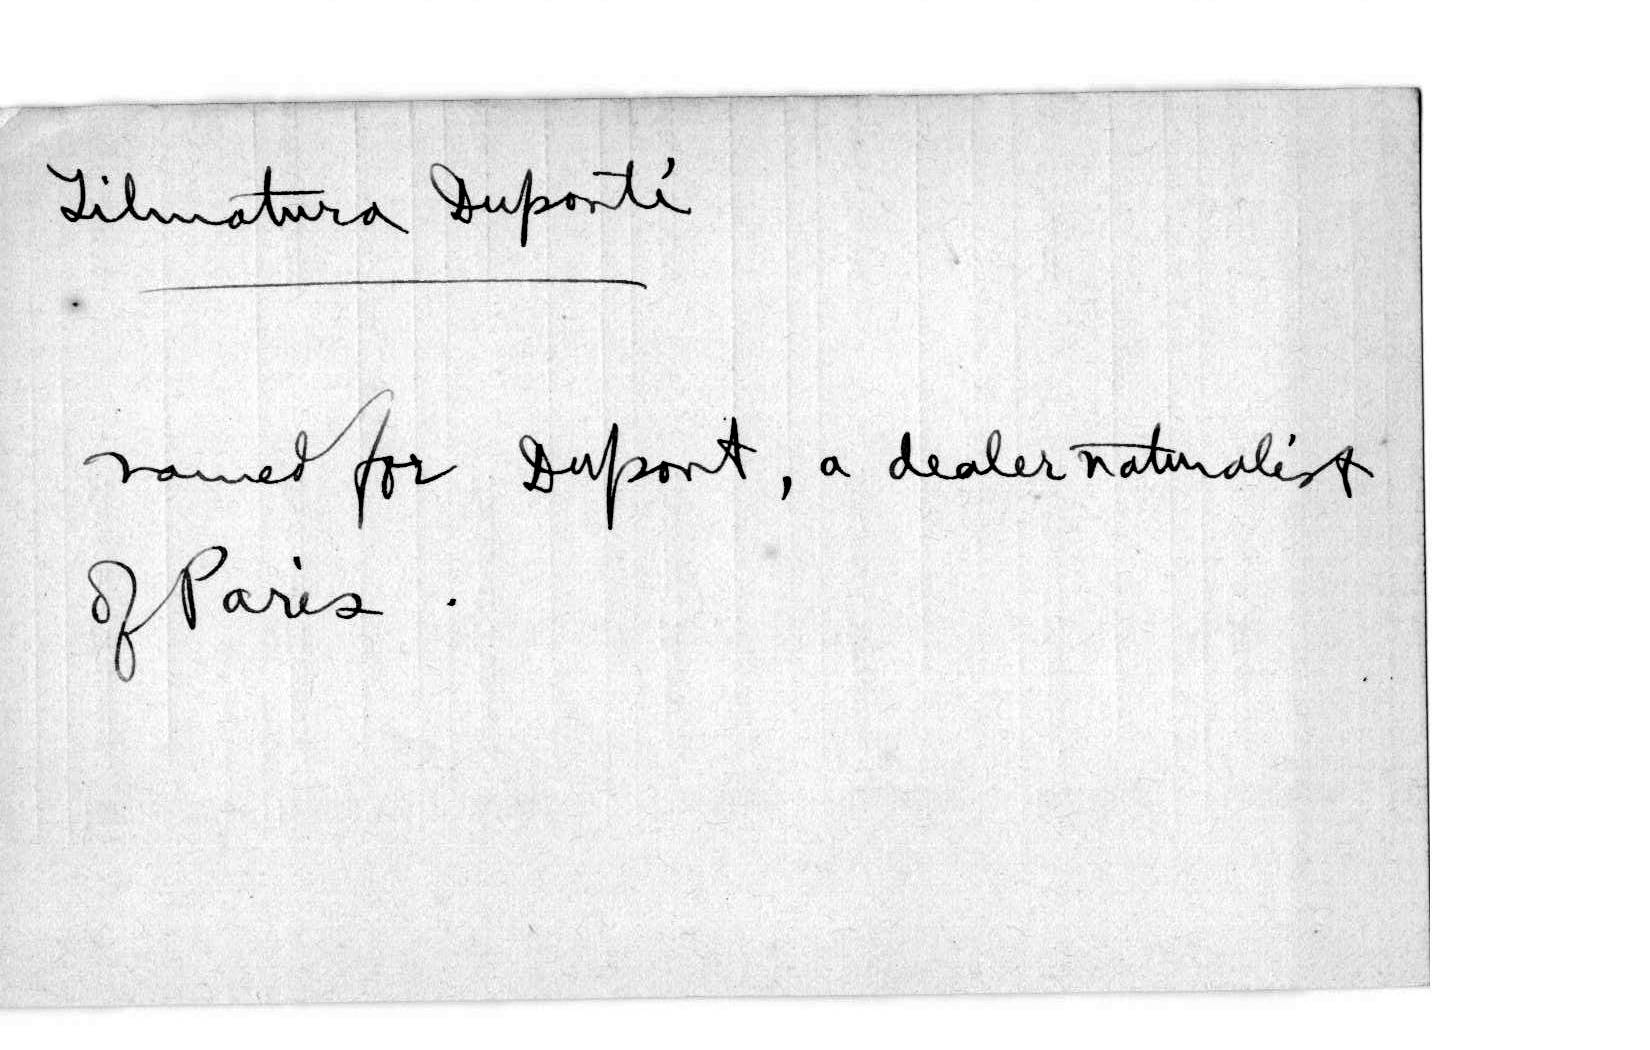 Tilmatura Duponti
named for Dupont, a dealer naturalist
of Paris .